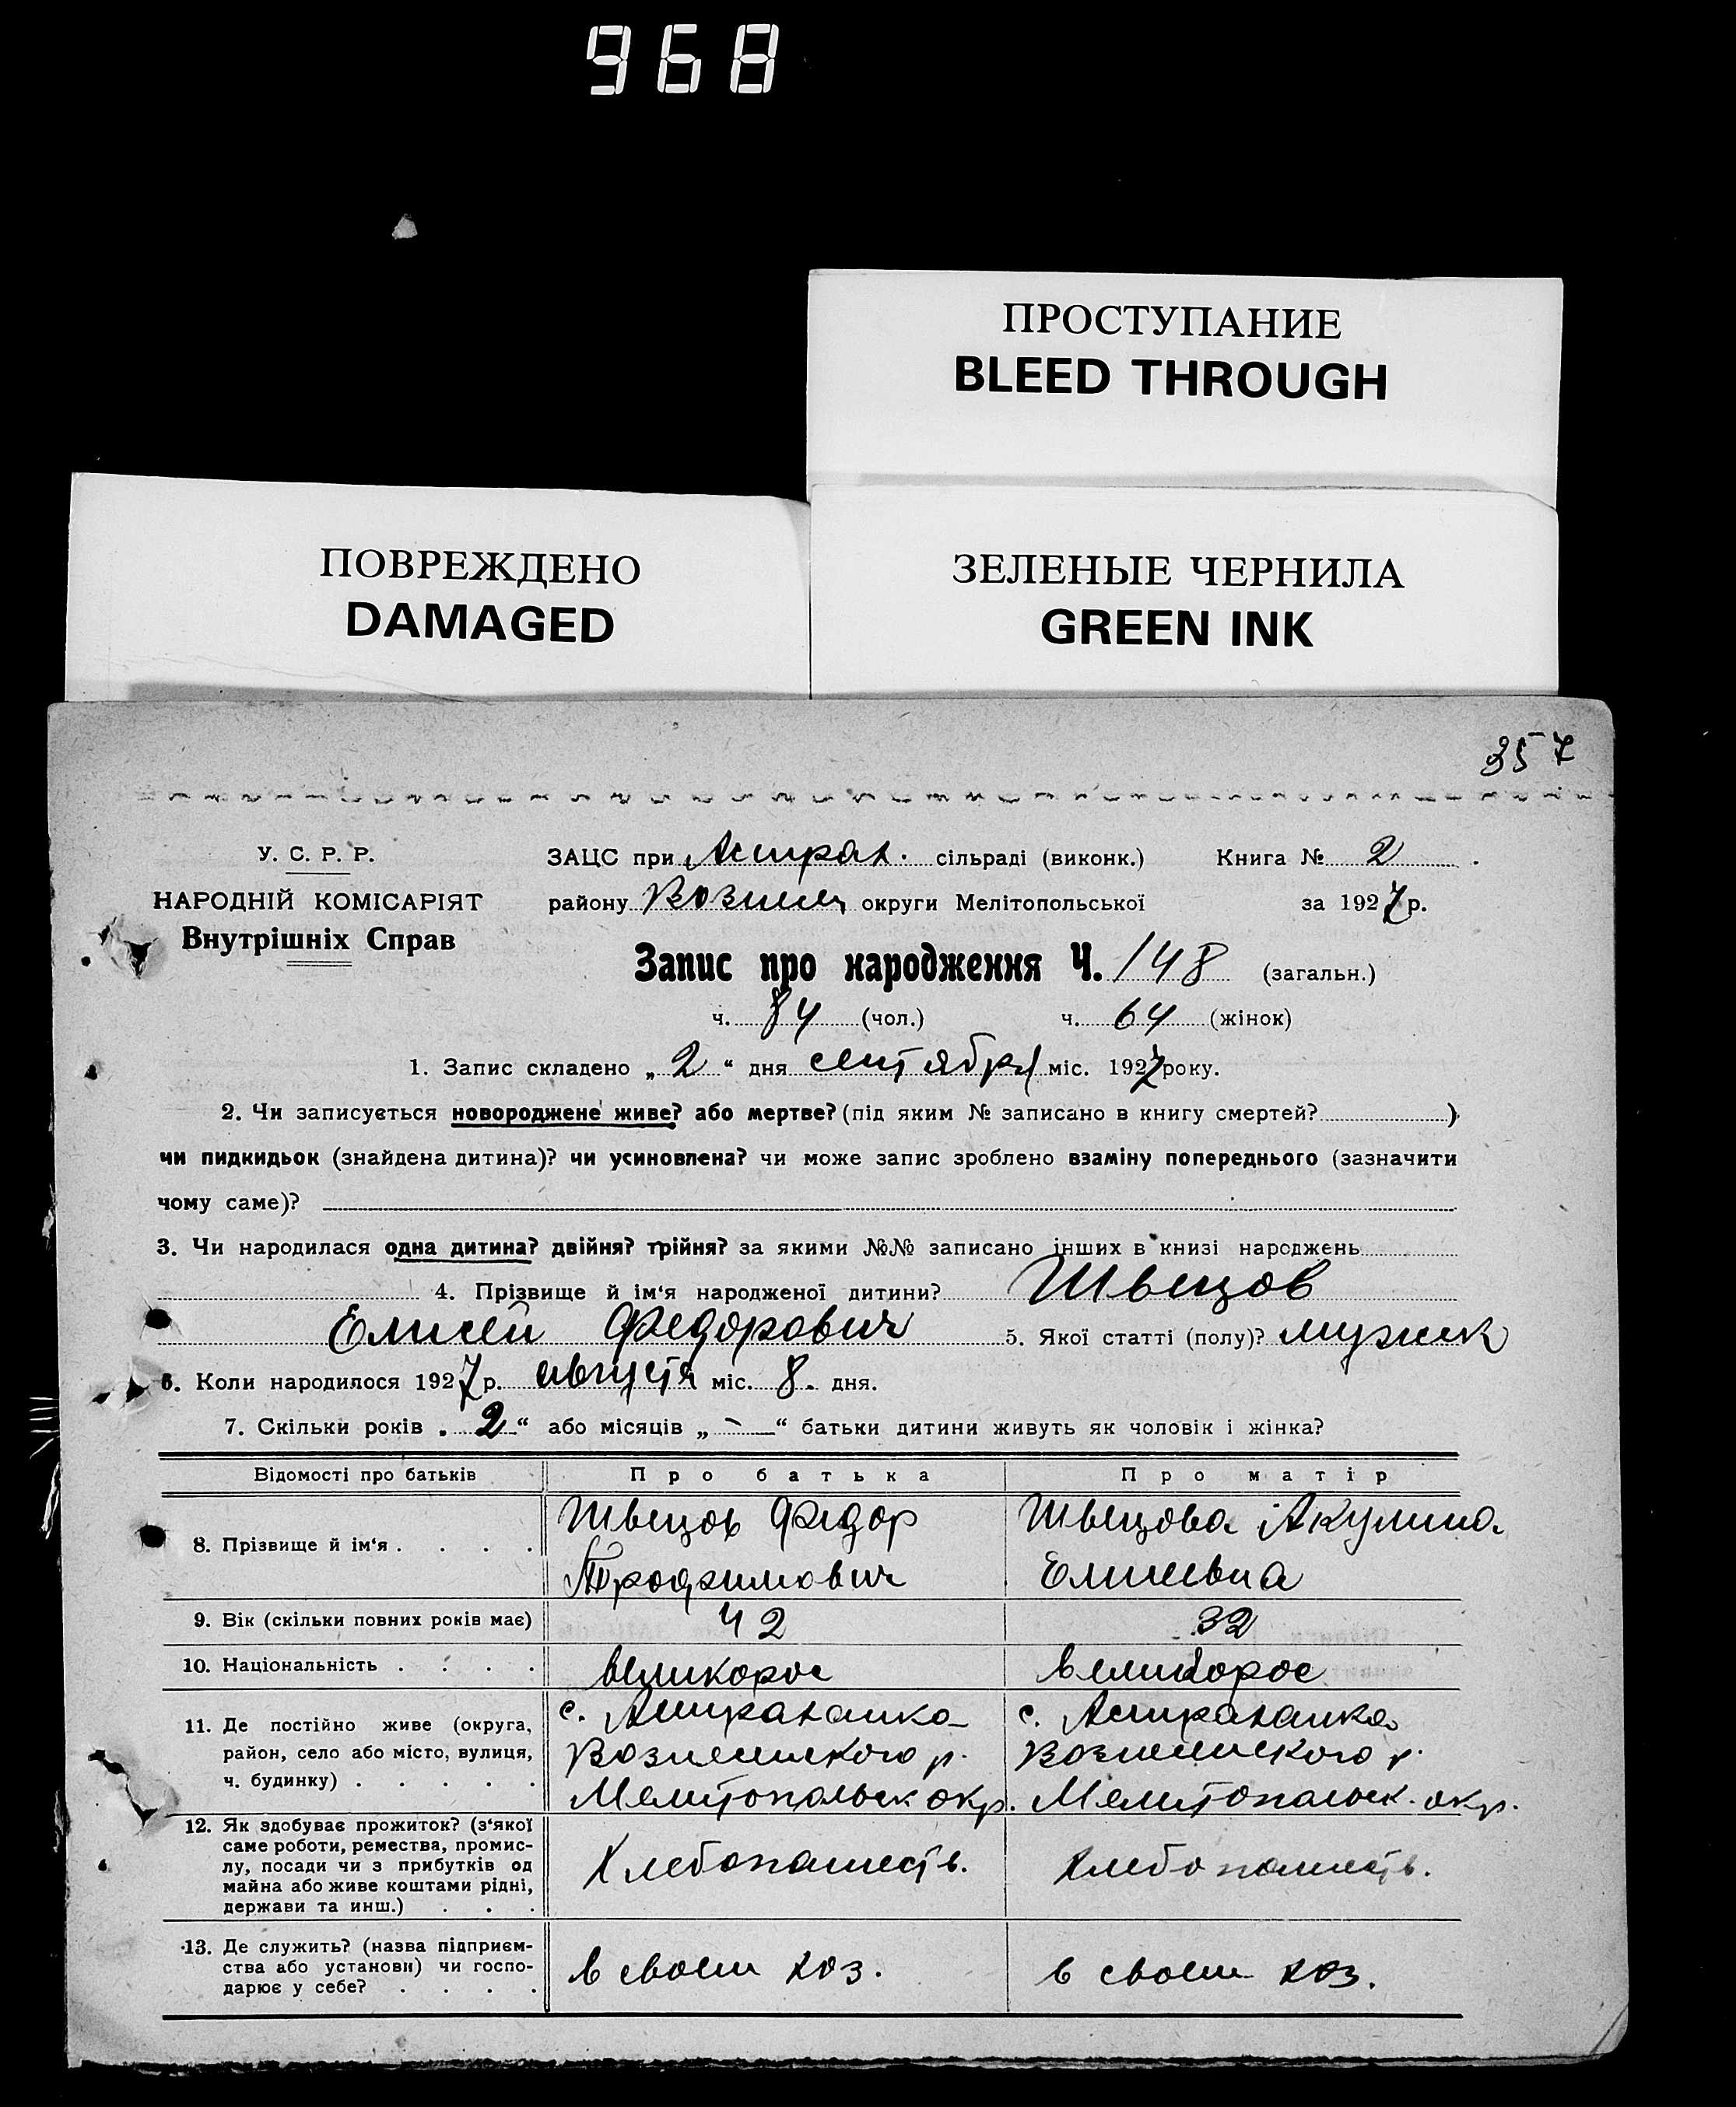 968
ПРОСТУПАНИЕ
BLEED THROUGH
ПОВРЕЖДЕНО
DAMAGED
ЗЕЛЕНЫЕ ЧЕРНИЛА
GREEN INK
357
У. С. Р. Р.
НАРОДНІЙ КОМІСАРІЯТ
Внутрішніх Справ
ЗАЦС при Астрах. сільраді (виконк.) Книга № 2
району Вознесен округи Мелітопольської за 1927 р.
Запис про народження Ч. 148 (загальн.)
ч. 84 (чол.) ч. 64 (жінок)
1. Запис складено „ 2 “ дня сентября міс. 1927 року.
2. Чи записується новороджене живе? або мертве? (під яким № записано в книгу смертей? )
чи пидкидьок (знайдена дитина)? чи усиновлена? чи може запис зроблено взаміну попереднього (зазначити
чому саме)?
3. Чи народилася одна дитина? двійня? трійня? за якими №№ записано інших в книзі народжень
4. Прізвище й ім‘я народженої дитини? Швецов
Елисей Федорович 5. Якої статті (полу)? мужск
6. Коли народилося 1927 р. августа міс. 8. дня.
7. Скільки років „ 2 “ або місяців „ - “ батьки дитини живуть як чоловік і жінка?
Відомості про батьків Про батька Про матір
8. Прізвище й ім‘я . . . .
Швецов Федор
Трофимович
Швецова Акулина
Елисеевна
9. Вік (скільки повних років має) 42 32
10. Національність . . . . великорос великорос
11. Де постійно живе (округа,
район, село або місто, вулиця,
ч. будинку) . . . . .
с. Астраханка
Вознесенского р.
Мелитопольск окр.
с. Астраханка
Вознесенского р.
Мелитопольск. окр.
12. Як здобуває прожиток? (з‘якої
саме роботи, ремества, промис-
лу, посади чи з прибутків од
майна або живе коштами рідні,
держави та инш.) . . .
Хлебопашеств.
Хлебопашеств.
13. Де служить? (назва підприєм-
ства або установи) чи госпо-
дарює у себе? . . . .
в своем хоз.
в своем хоз.